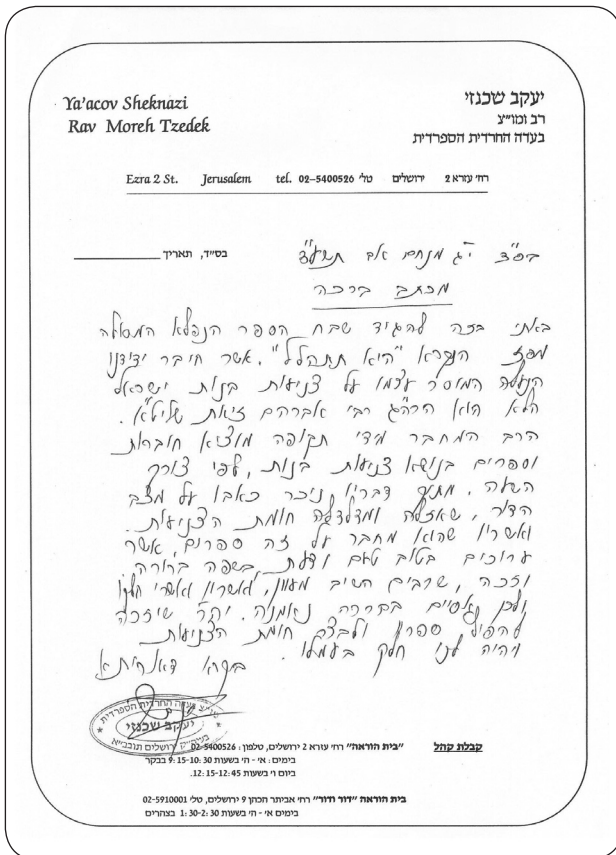 Ya'acov Sheknazi
Rav Moreh Tzedek
יעקב שכנזי
רב ומו״צ
בעדה החרדית הספרדית
Ezra 2 St. Jerusalem tel. 02-5400526 טלי ירושלים רחי עזרא 2
בס״ד, תאריך
בס״ד י״ג מנחם אב
מכתב ברכה
באתי בזה להגיד שבח הספר הנפלא המסולא
מפז הנקרא "היא תתהלל", אשר חיבר ידידנו
הנעלה המוסר עצמו על צניעות בנות ישראל
הלא הוא הרה"ג רבי אברהם זיאת שליט"א.
הרב המחבר מידי תקופה מוציא חוברות
וספרים בנושא צניעות בנות, לפי צורך
השעה. מתוך דבריו ניכר כאבו על מצב
הדור, שאזלה ומדלדלה חומת הצניעות.
ואשריו שהוא מחבר על זה ספרים, אשר
ערוכים בטוב טעם ודעת בשפה ברורה
וזכה, שרבים השיב מעוון, ואשריו ואשרי חלקו
ולכן בברכה נאמנה. שיזכה
ספריו חומת הצניעות
ויהיה לנו חלק בעמלו.
בעדה החרדית הספרדית
יעקב שכנזי
ירושלים תובב״א
קבלת קהל "בית הוראה" רחי עזרא 2 ירושלים, טלפון: 02-5400526
בימים: אי - הי בשעות 9:15-10:30 בבקר
ביום וי בשעות 12:15-12:45.
בית הוראה "דור ודור" רחי אביתר הכהן 9 ירושלים, טלי 02-5910001
בימים אי - הי בשעות 1:30-2:30 בצהרים